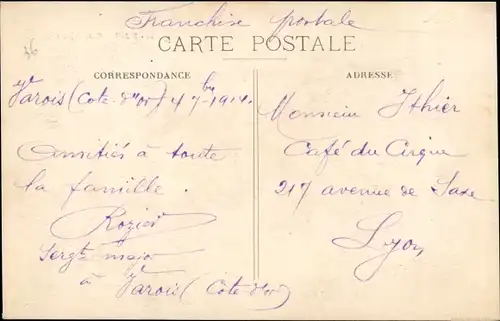 Franchise postale
CARTE POSTALE
CORRESPONDANCE
Varois (Cote-d'or) 4 7bre 1914.
Amitiés à toute
la famille.
Rozier
Sergt major
à Varois (Cote d'or)
ADRESSE
Monsieur Ithier
Café du Cirque
217 avenue de Saxe
Lyon